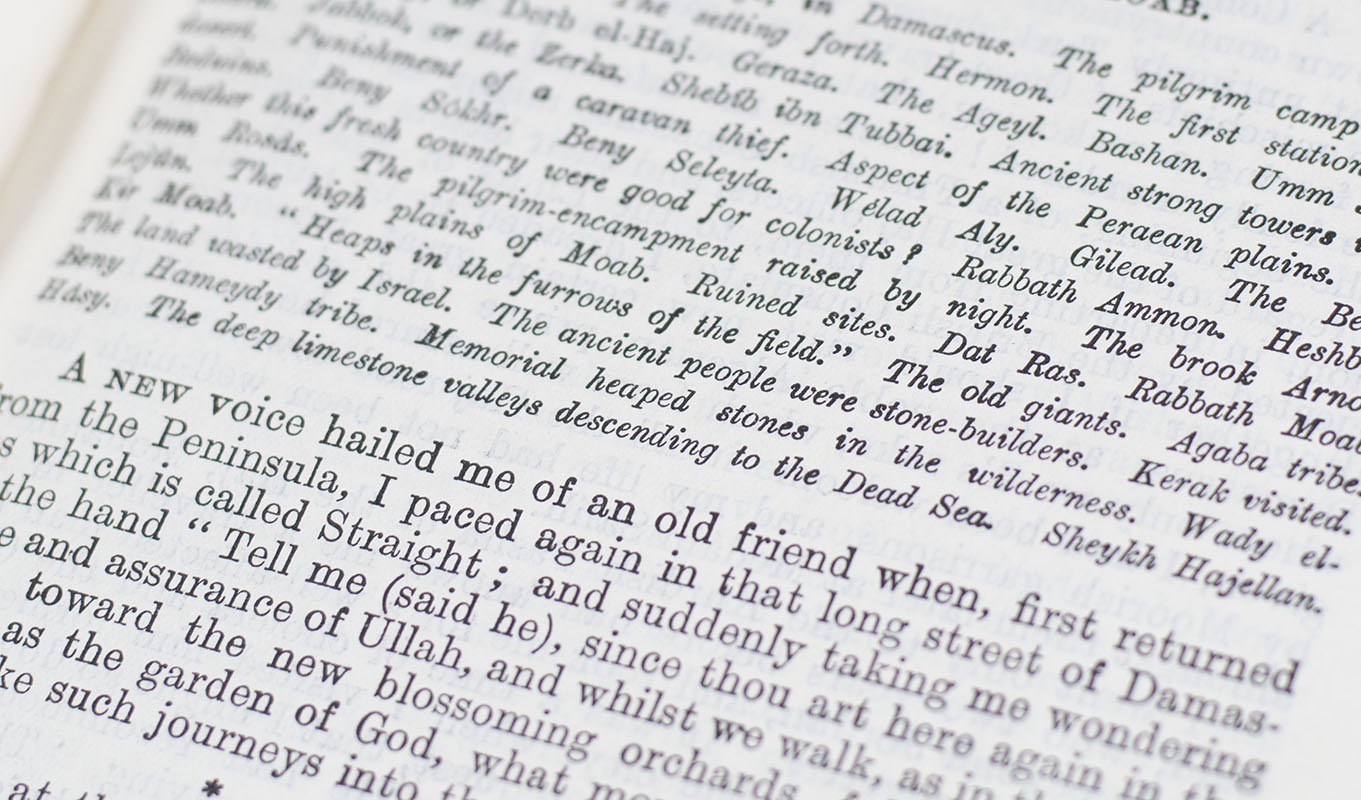 OAB.
in Damascus. The pilgrim camp
The setting forth. Hermon. The first station
or Derb el-Haj. Geraza. The Ageyl. Bashan. Umm
Jabbok, or the Zerka. Shebîb ibn Tubbai. Ancient strong towers i
desert. Punishment of a caravan thief. Aspect of the Peraean plains.
Beduins. Beny Sókhr. Beny Seleyta. Wélad Aly. Gilead. The Be
Whether this fresh country were good for colonists? Rabbath Ammon. Heshb
Umm Rosás. The pilgrim-encampment raised by night. The brook Arno
Lejûn. The high plains of Moab. Ruined sites. Dat Ras. Rabbath Moab
Kir Moab. “Heaps in the furrows of the field.” The old giants. Agaba tribe.
The land wasted by Israel. The ancient people were stone-builders. Kerak visited.
Beny Hameydy tribe. Memorial heaped stones in the wilderness. Wady el-
Hásy. The deep limestone valleys descending to the Dead Sea. Sheykh Hajellan.
A NEW voice hailed me of an old friend when, first returned
rom the Peninsula, I paced again in that long street of Damas-
s which is called Straight; and suddenly taking me wondering
the hand “Tell me (said he), since thou art here again in the
e and assurance of Ullah, and whilst we walk, as in th
toward the new blossoming orchards
as the garden of God, what mo
ke such journeys into th
at th *